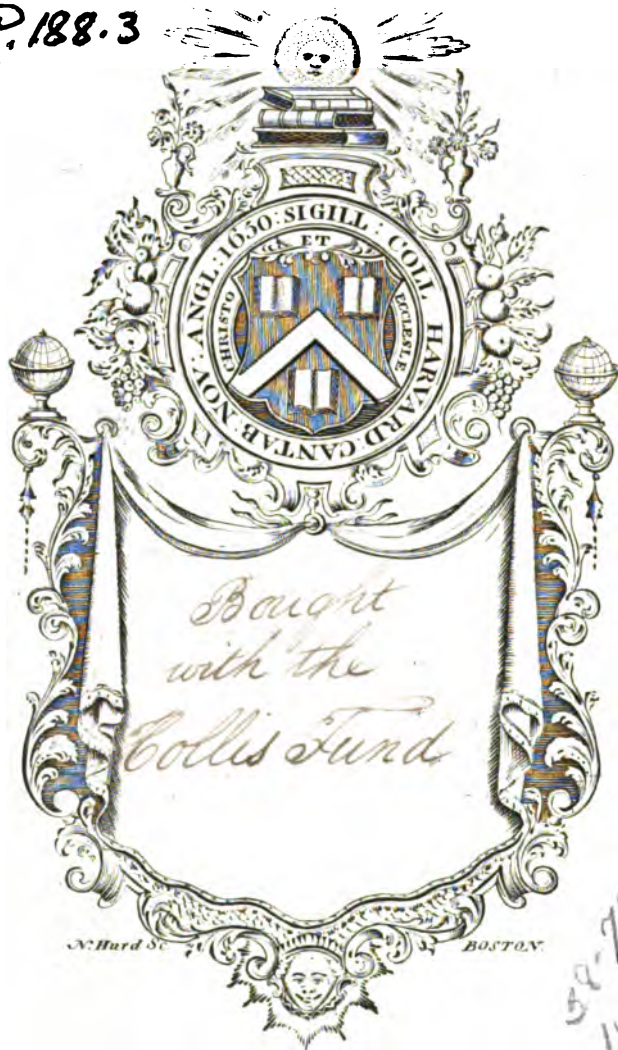 P. 188.3
SIGILL: COLL HARVARD: CANTAB: NOV: ANGL: 1650:
CHRISTO ET ECCLESIÆ
Bought
with the
Collis Fund
N. Hurd Sc
BOSTON.